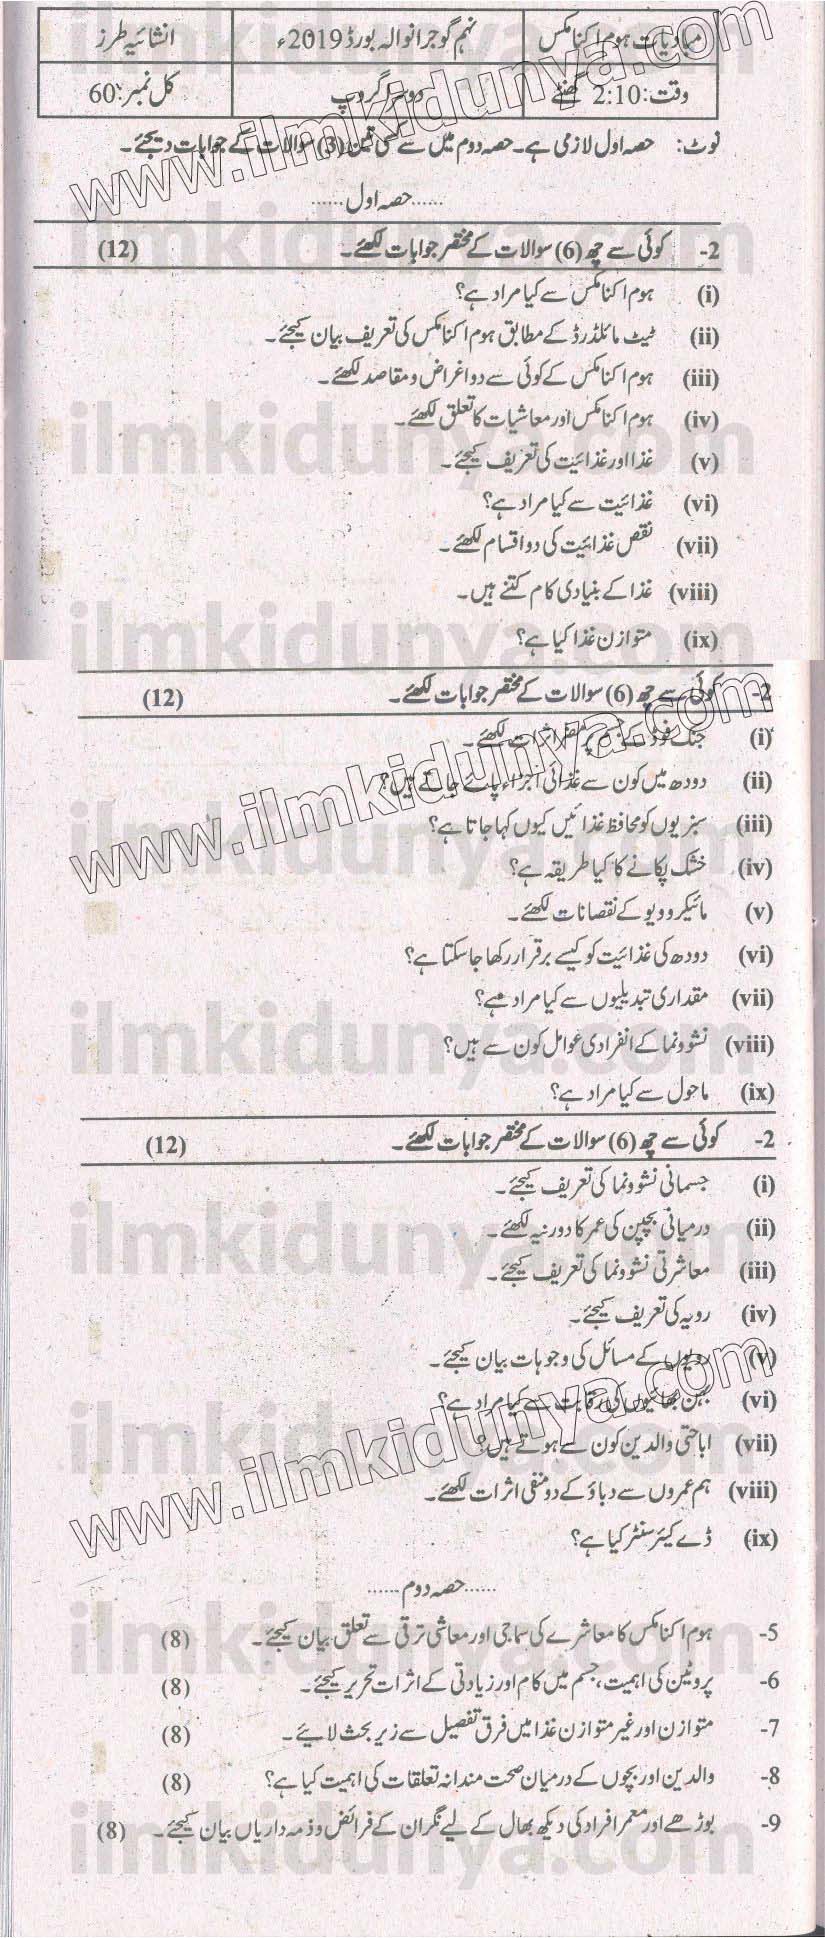 مبادیات ہوم اکنامکس نہم گوجرانوالہ بورڈ 2019ء انشائیہ طرز
وقت: 2:10 گھنٹے دوسرا گروپ کل نمبر: 60
نوٹ: حصہ اول لازمی ہے۔ حصہ دوم میں سے کسی تین (3) سوالات کے جوابات دیجئے۔
......حصہ اول......
2- کوئی سے چھ (6) سوالات کے مختصر جوابات لکھئے۔ (12)
(i) ہوم اکنامکس سے کیا مراد ہے؟
(ii) ٹیٹ مائلڈرڈ کے مطابق ہوم اکنامکس کی تعریف بیان کیجئے۔
(iii) ہوم اکنامکس کے کوئی سے دو اغراض و مقاصد لکھئے۔
(iv) ہوم اکنامکس اور معاشیات کا تعلق لکھئے۔
(v) غذا اور غذائیت کی تعریف کیجئے۔
(vi) غذائیت سے کیا مراد ہے؟
(vii) نقص غذائیت کی دو اقسام لکھئے۔
(viii) غذا کے بنیادی کام کتنے ہیں۔
(ix) متوازن غذا کیا ہے؟
2- کوئی سے چھ (6) سوالات کے مختصر جوابات لکھئے۔ (12)
(i) جنک فوڈ کے جسم پر مضر اثرات لکھئے۔
(ii) دودھ میں کون سے غذائی اجزاء پائے جاتے ہیں؟
(iii) سبزیوں کو محافظ غذائیں کیوں کہا جاتا ہے؟
(iv) خشک پکانے کا کیا طریقہ ہے؟
(v) مائیکروویو کے نقصانات لکھئے۔
(vi) دودھ کی غذائیت کو کیسے برقرار رکھا جا سکتا ہے؟
(vii) مقداری تبدیلیوں سے کیا مراد ہے؟
(viii) نشوونما کے انفرادی عوامل کون سے ہیں؟
(ix) ماحول سے کیا مراد ہے؟
2- کوئی سے چھ (6) سوالات کے مختصر جوابات لکھئے۔ (12)
(i) جسمانی نشوونما کی تعریف کیجئے۔
(ii) درمیانی بچپن کی عمر کا دورنیہ لکھئے۔
(iii) معاشرتی نشوونما کی تعریف کیجئے۔
(iv) رویہ کی تعریف کیجئے۔
(v) رویوں کے مسائل کی وجوہات بیان کیجئے۔
(vi) بہن بھائیوں کی رقابت سے کیا مراد ہے؟
(vii) اباحتی والدین کون سے ہوتے ہیں؟
(viii) ہم عمروں سے دباؤ کے دو منفی اثرات لکھئے۔
(ix) ڈے کیئر سنٹر کیا ہے؟
......حصہ دوم......
5- ہوم اکنامکس کا معاشرے کی سماجی اور معاشی ترقی سے تعلق بیان کیجئے۔ (8)
6- پروٹین کی اہمیت، جسم میں کام اور زیادتی کے اثرات تحریر کیجئے۔ (8)
7- متوازن اور غیر متوازن غذا میں فرق تفصیل سے زیر بحث لائیے۔ (8)
8- والدین اور بچوں کے درمیان صحت مندانہ تعلقات کی اہمیت کیا ہے؟ (8)
9- بوڑھے اور معمر افراد کی دیکھ بھال کے لیے نگران کے فرائض و ذمہ داریاں بیان کیجئے۔ (8)
www.ilmkidunya.com
ilmkidunya.com
ilmkidunya.com
ilmkidunya.com
ilmkidunya.com
www.ilmkidunya.com
ilmkidunya.com
ilmkidunya.com
ilmkidunya.com
www.ilmkidunya.com
ilmkidunya.com
ilmkidunya.com